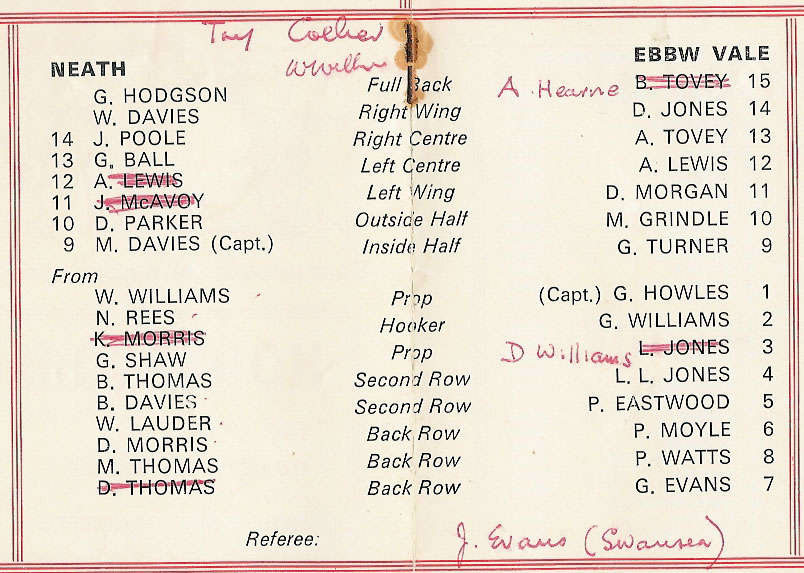 NEATH
EBBW VALE
G. HODGSON Full Back A. Hearne B. TOVEY 15
W. DAVIES Right Wing D. JONES 14
14 J. POOLE Right Centre A. TOVEY 13
13 G. BALL Left Centre A. LEWIS 12
12 A. LEWIS Left Wing D. MORGAN 11
11 J. McAVOY Outside Half M. GRINDLE 10
10 D. PARKER Inside Half G. TURNER 9
9 M. DAVIES (Capt.)
From
W. WILLIAMS Prop (Capt.) G. HOWLES 1
N. REES Hooker G. WILLIAMS 2
K. MORRIS Prop D Williams L. JONES 3
G. SHAW Second Row L. L. JONES 4
B. THOMAS Second Row P. EASTWOOD 5
B. DAVIES Back Row P. MOYLE 6
W. LAUDER Back Row P. WATTS 8
D. MORRIS Back Row G. EVANS 7
M. THOMAS
D. THOMAS
Referee: J. Evans (Swansea)